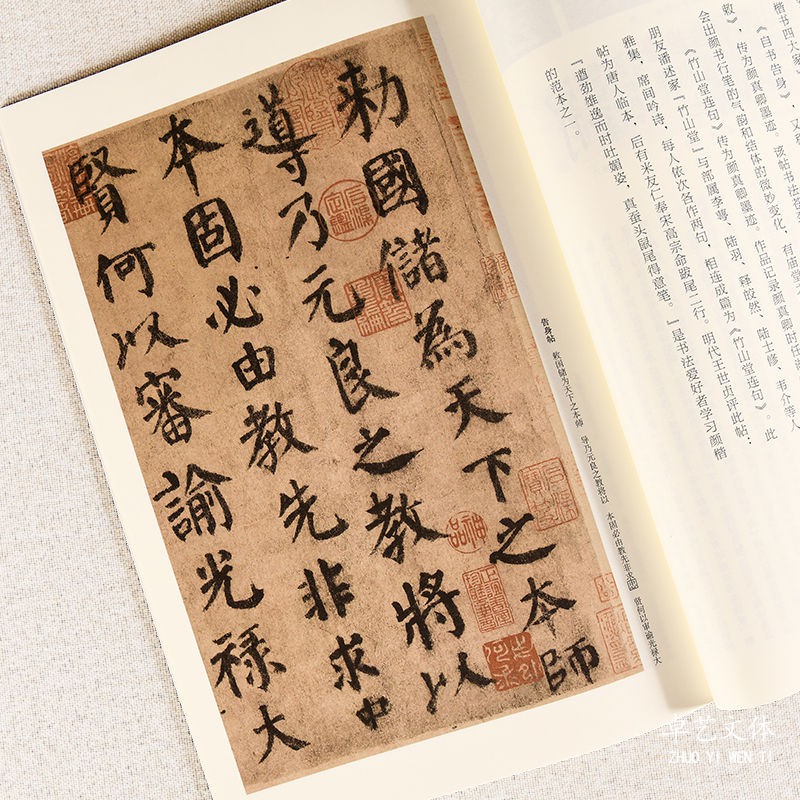 楷书四大家
《自书告身》，又
敕》，传为颜真卿墨迹。该帖书法
会出颜书行笔的气韵和结体的微妙变化，有庙堂
《竹山堂连句》传为颜真卿墨迹。作品记录颜真卿时任
朋友潘述家『竹山堂』与部属李萼、陆羽、释皎然、陆士修、韦介等人
雅集，席间吟诗，每人依次各作两句，相连成篇为《竹山堂连句》。此
帖为唐人临本，后有米友仁奉宋高宗命跋尾二行。明代王世贞评此帖：
『遒劲雄逸而时吐媚姿，真蚕头鼠尾得意笔。』是书法爱好者学习颜楷
的范本之一。
告身帖 敕国储为天下之本师 导乃元良之教将以 本固必由教先非求中 贤何以审谕光禄大
勅國儲為天下之本師
導乃元良之教將以
本固必由教先非求中
賢何以審諭光祿大
卓艺文体
ZHUO YI WEN TI